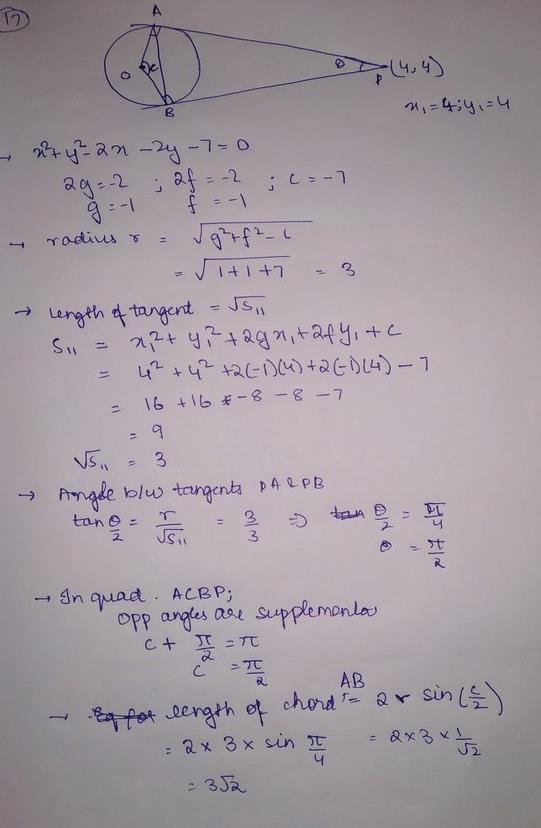 17
A
O
C
B
θ
P
(4,4)
x₁=4; y₁=4
→ x²+y²-2x-2y-7=0
2g=-2 ; 2f=-2 ; c=-7
g=-1 f=-1
→ radius r = √g²+f²-c
= √1+1+7 = 3
→ Length of tangent = √S₁₁
S₁₁ = x₁²+y₁²+2gx₁+2fy₁+c
= 4²+4²+2(-1)(4)+2(-1)(4)-7
= 16+16-8-8-7
= 9
√S₁₁ = 3
→ Angle b/w tangents PA & PB
tan θ/2 = r/√S₁₁ = 3/3 ⇒ θ/2 = π/4
θ = π/2
→ In quad. ACBP;
opp angles are supplementa
C + π/2 = π
C = π/2
→ length of chord AB = 2r sin(C/2)
= 2×3×sin π/4 = 2×3×1/√2
= 3√2